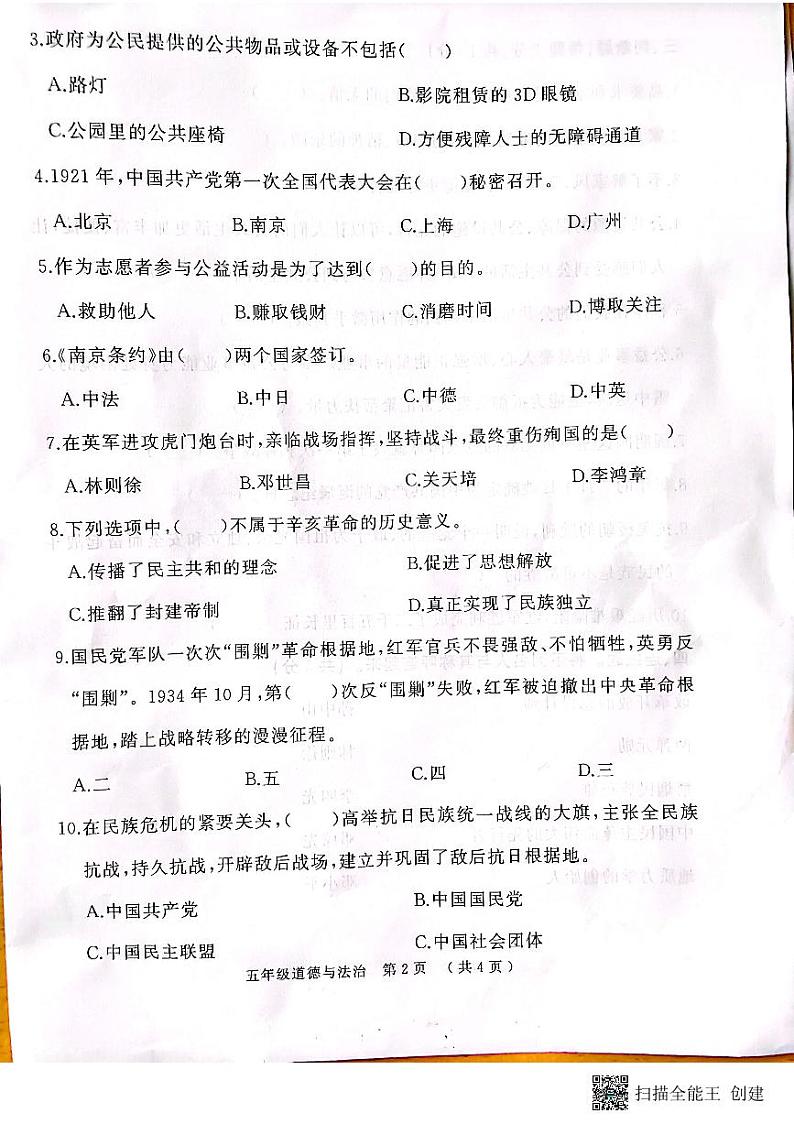 3.政府为公民提供的公共物品或设备不包括(　　)
A.路灯　　B.影院租赁的 3D 眼镜
C.公园里的公共座椅　　D.方便残障人士的无障碍通道
4.1921 年,中国共产党第一次全国代表大会在(　　)秘密召开。
A.北京　　B.南京　　C.上海　　D.广州
5.作为志愿者参与公益活动是为了达到(　　)的目的。
A.救助他人　　B.赚取钱财　　C.消磨时间　　D.博取关注
6.《南京条约》由(　　)两个国家签订。
A.中法　　B.中日　　C.中德　　D.中英
7.在英军进攻虎门炮台时,亲临战场指挥,坚持战斗,最终重伤殉国的是(　　)
A.林则徐　　B.邓世昌　　C.关天培　　D.李鸿章
8.下列选项中,(　　)不属于辛亥革命的历史意义。
A.传播了民主共和的理念　　B.促进了思想解放
C.推翻了封建帝制　　D.真正实现了民族独立
9.国民党军队一次次“围剿”革命根据地,红军官兵不畏强敌、不怕牺牲,英勇反
“围剿”。1934 年 10 月,第(　　)次反“围剿”失败,红军被迫撤出中央革命根
据地,踏上战略转移的漫漫征程。
A.二　　B.五　　C.四　　D.三
10.在民族危机的紧要关头,(　　)高举抗日民族统一战线的大旗,主张全民族
抗战,持久抗战,开辟敌后战场,建立并巩固了敌后抗日根据地。
A.中国共产党　　B.中国国民党
C.中国民主联盟　　C.中国社会团体
五年级道德与法治　第 2 页　(共 4 页)
扫描全能王 创建